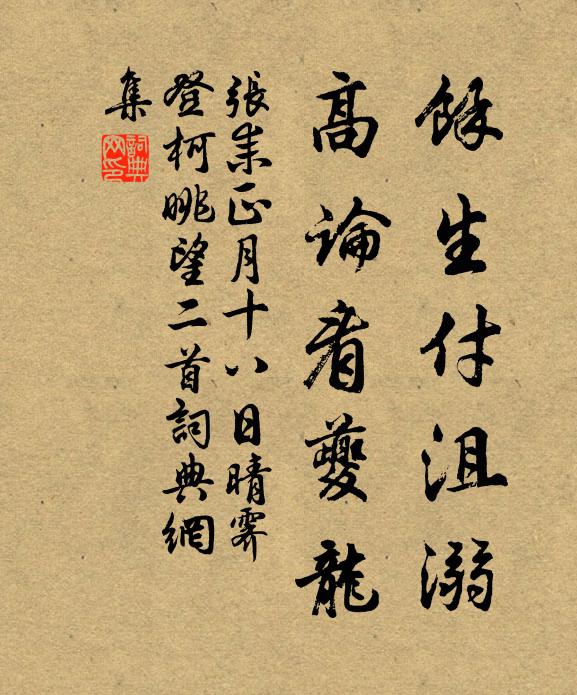 餘生付沮溺
高論看夔龍
張耒正月十八日晴霽
登柯眺望二首詞典網
集
詞典网印